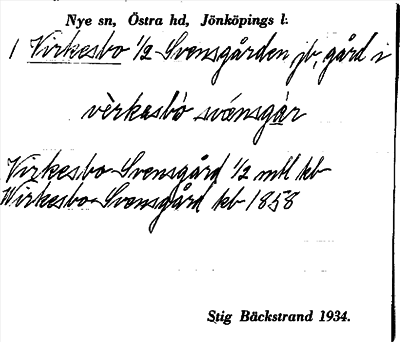 Nye sn, Östra hd, Jönköpings l.
1 Virkesbo 1/2 Svensgården jb, gård i
vèrkasbò svánsgàr
Virkesbo Svensgård 1/2 mtl kb
Wirkesbo Svensgård kb 1858
Stig Bäckstrand 1934.